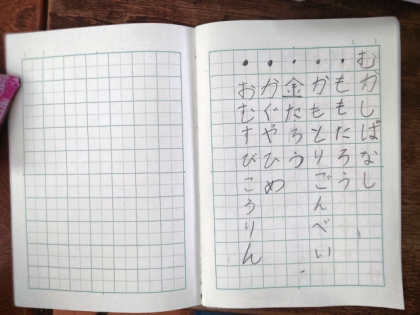 むかしばなし
・ももたろう
・かもとりごんべい
・金たろう
・かぐやひめ
・おむすびころりん